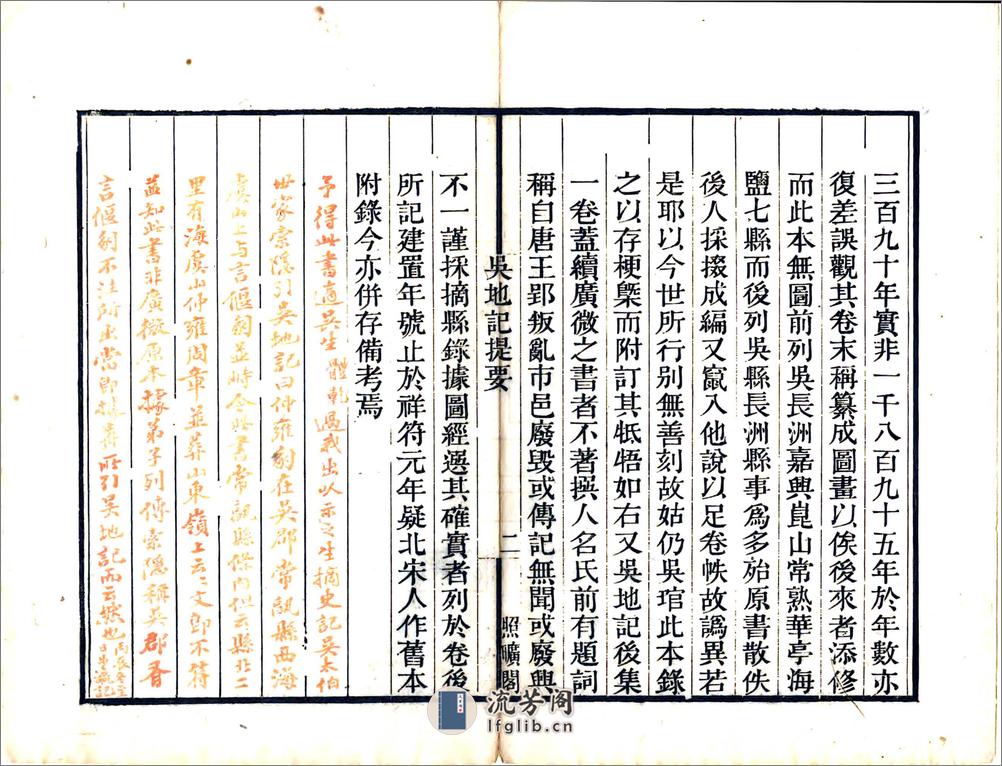 三百九十年實非一千八百九十五年於年數亦
復差誤觀其卷末稱纂成圖畫以俟後來者添修
而此本無圖前列吳長洲嘉興崑山常熟華亭海
鹽七縣而後列吳縣長洲縣事爲多殆原書散佚
後人採掇成編又竄入他說以足卷帙故譌異若
是耶以今世所行别無善刻故姑仍吳琯此本錄
之以存梗槩而附訂其牴牾如右又吳地記後集
一卷蓋續廣微之書者不著撰人名氏前有題詞
稱自唐王郢叛亂市邑廢毀或傳記無聞或廢興
吳地記提要
二
照曠閣
不一謹採摘縣錄據圖經選其確實者列於卷後
所記建置年號止於祥符元年疑北宋人作舊本
附錄今亦併存備考焉
予得此書適吳生體乾過我出以示之生摘史記吳太伯
世家索隱引吳地記曰仲雍冢在吳郡常熟縣西海
虞山上与言偃冢並時今此書常熟縣條内但云縣北二
里有海虞山仲雍周章並葬山東嶺上云云文即不符
益知此書非廣微原本據弟子列傳索隱稱吳郡有
言偃冢不注所出當即據前所引吳地記而云然也
流芳阁
lfglib.cn